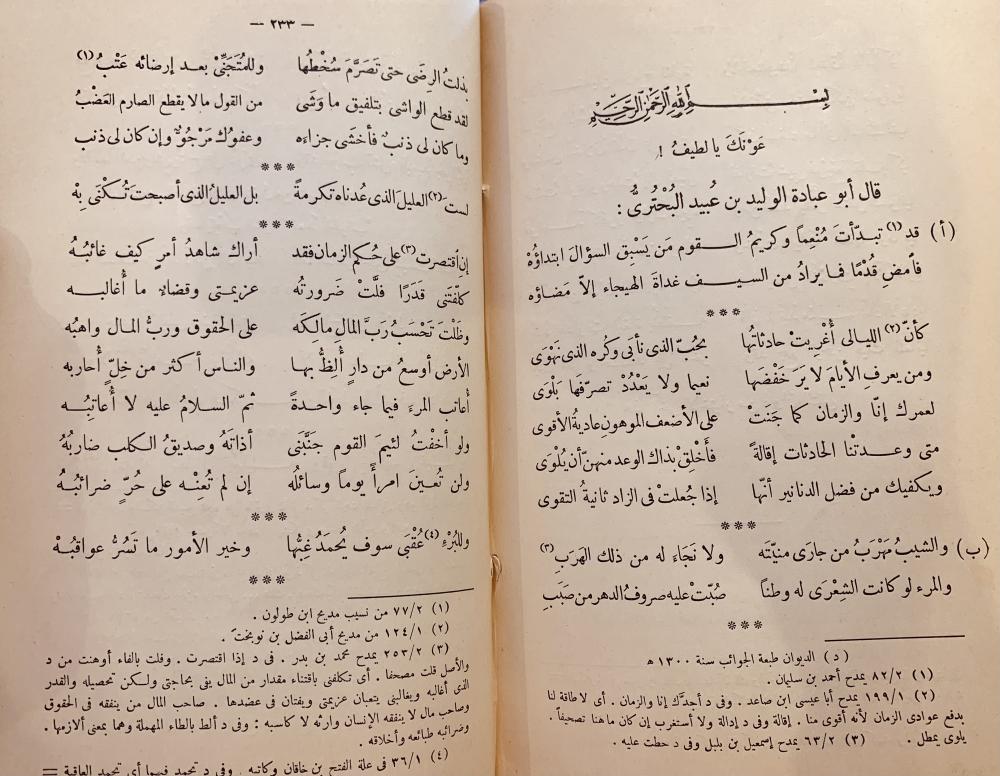 بِسْمِ اللهِ الرَّحْمٰنِ الرَّحِيْمِ
عَوْنَكَ يا لطيفُ !
قال أبو عبادة الوليد بن عُبيد البُحْتُرِىُّ :
(أ) قد (١) تبدأتَ مُنْعِماً وكريمُ القوم مَن يَسْبِق السؤالَ ابتداؤُهْ
فأمضِ قُدْمًا فما يرادُ من السيف غداةَ الهيجاء إلاّ مَضاؤه
***
كأنّ (٢) الليالى أُغْرِيتْ حادثاتُها بحُبّ الذى نأبَى وكُره الذى نَهْوَى
ومن يعرفِ الأيامَ لا يَرَ خَفْضَها نعيما ولا يَعْدُدْ تصرّفَها بَلْوَى
لعمرك إنّا والزمان كما جَنَتْ على الأضعف الموهونِ عاديةُ الأقوى
متى وعدتْنا الحادثات إقالةً فأَخْلِقْ بذاك الوعد منهنّ أن يُلْوَى
ويكفيك من فضل الدنانير أنّها إذا جُعلتْ فى الزاد ثانيةُ التقوى
***
(ب) والشيبُ مَهْرَبُ من جارَى منيّتَه ولا نَجَاءَ له من ذلك الهَرَبِ (٣)
والمرء لو كانت الشِعْرَى له وطناً صُبّتْ عليه صروفُ الدهر من صَبَبِ
***
(د) الديوان طبعة الجوائب سنة ١٣٠٠ هـ
(١) ٨٢/٢ يمدح أحمد بن سليمان .
(٢) ١٩٩/١ يمدح أبا عيسى ابن صاعد . وفى د أجدَّك إنا والزمان . أى لا طاقة لنا
بدفع عوادى الزمان لأنه أقوى منا . إقالة وفى د إدالة ولا أستغرب إن كان ما هنا تصحيفاً .
يلوى يمطل . (٣) ٦٣/٢ يمدح إسمعيل بن بلبل وفى د حطت عليه .
— ٢٣٣ —
بذلتُ الرِضَى حتى تَصَرَّمَ سُخْطُها وللمُتَجَنِّىْ بعد إرضائه عَتْبُ (١)
لقد قطع الواشى بتلفيق ما وَشَى من القول ما لا يقطع الصارم العَضْبُ
وما كان لى ذنبٌ فأخشَى جزاءه وعفوُك مَرْجُوٌّ وإن كان لى ذنب
***
لستَ (٢) العليلَ الذى عُدناه تكرمةً بل العليلُ الذى أصبحتَ تُكْنَى بِهْ
***
إن اقتصرت (٣) على حُكم الزمان فقد أراك شاهدُ أمرٍ كيف غائبُهُ
كلّفتَنى قدَرًا فلَّتْ ضَرورتُه عزيمتى وقضاءً ما أُغالبه
وظَلْتَ تَحْسَبُ رَبَّ المالِ مالِكَه على الحقوق وربُّ المال واهبُه
الأرض أوسعُ من دارٍ أُلِظُّ بها والناس أكثر من خِلٍّ أُحاربه
أعاتب المرءَ فيما جاء واحدةً ثمّ السلامُ عليه لا أُعاتبُه
ولو أَخفْتُ لئيمَ القوم جَنَّبَنى أذاتَهُ وصديقُ الكلب ضاربُهُ
ولن تُعينَ امرأً يوماً وسائلُه إن لم تُعِنْه على حُرٍّ ضرائبُهُ
***
وللبُرْءِ (٤) عُقْبَى سوف يُحمَدُ غِبُّها وخير الأمور ما تَسُرُّ عواقبُهْ
***
(١) ٧٧/٢ من نسيب مديح ابن طولون .
(٢) ١٢٤/١ من مديح أبى الفضل بن نوبخت .
(٣) ٢٥٣/٢ يمدح محمد بن بدر . فى د إذا اقتصرت . وفلت بالفاء أوهنت من د
والأصل قلت مصحفا . أى تكلفنى باقتناء مقدار من المال يفى بحاجتى ولكن تحصيله والقدر
الذى أغالبه ويغالبنى يتعبان عزيمتى ويفتان فى عضدها . صاحب المال من ينفقه فى الحقوق
وصاحب مال لا ينفقه الإنسان وارثه لا كاسبه : وفى د ألط بالطاء المهملة وهما بمعنى ألازمها .
وضرائبه طبائعه وأخلاقه .
(٤) ٣٦/١ فى علة الفتح بن خاقان وكاتبه . وفى د تحمد فيهما أى تحمد العاقبة =